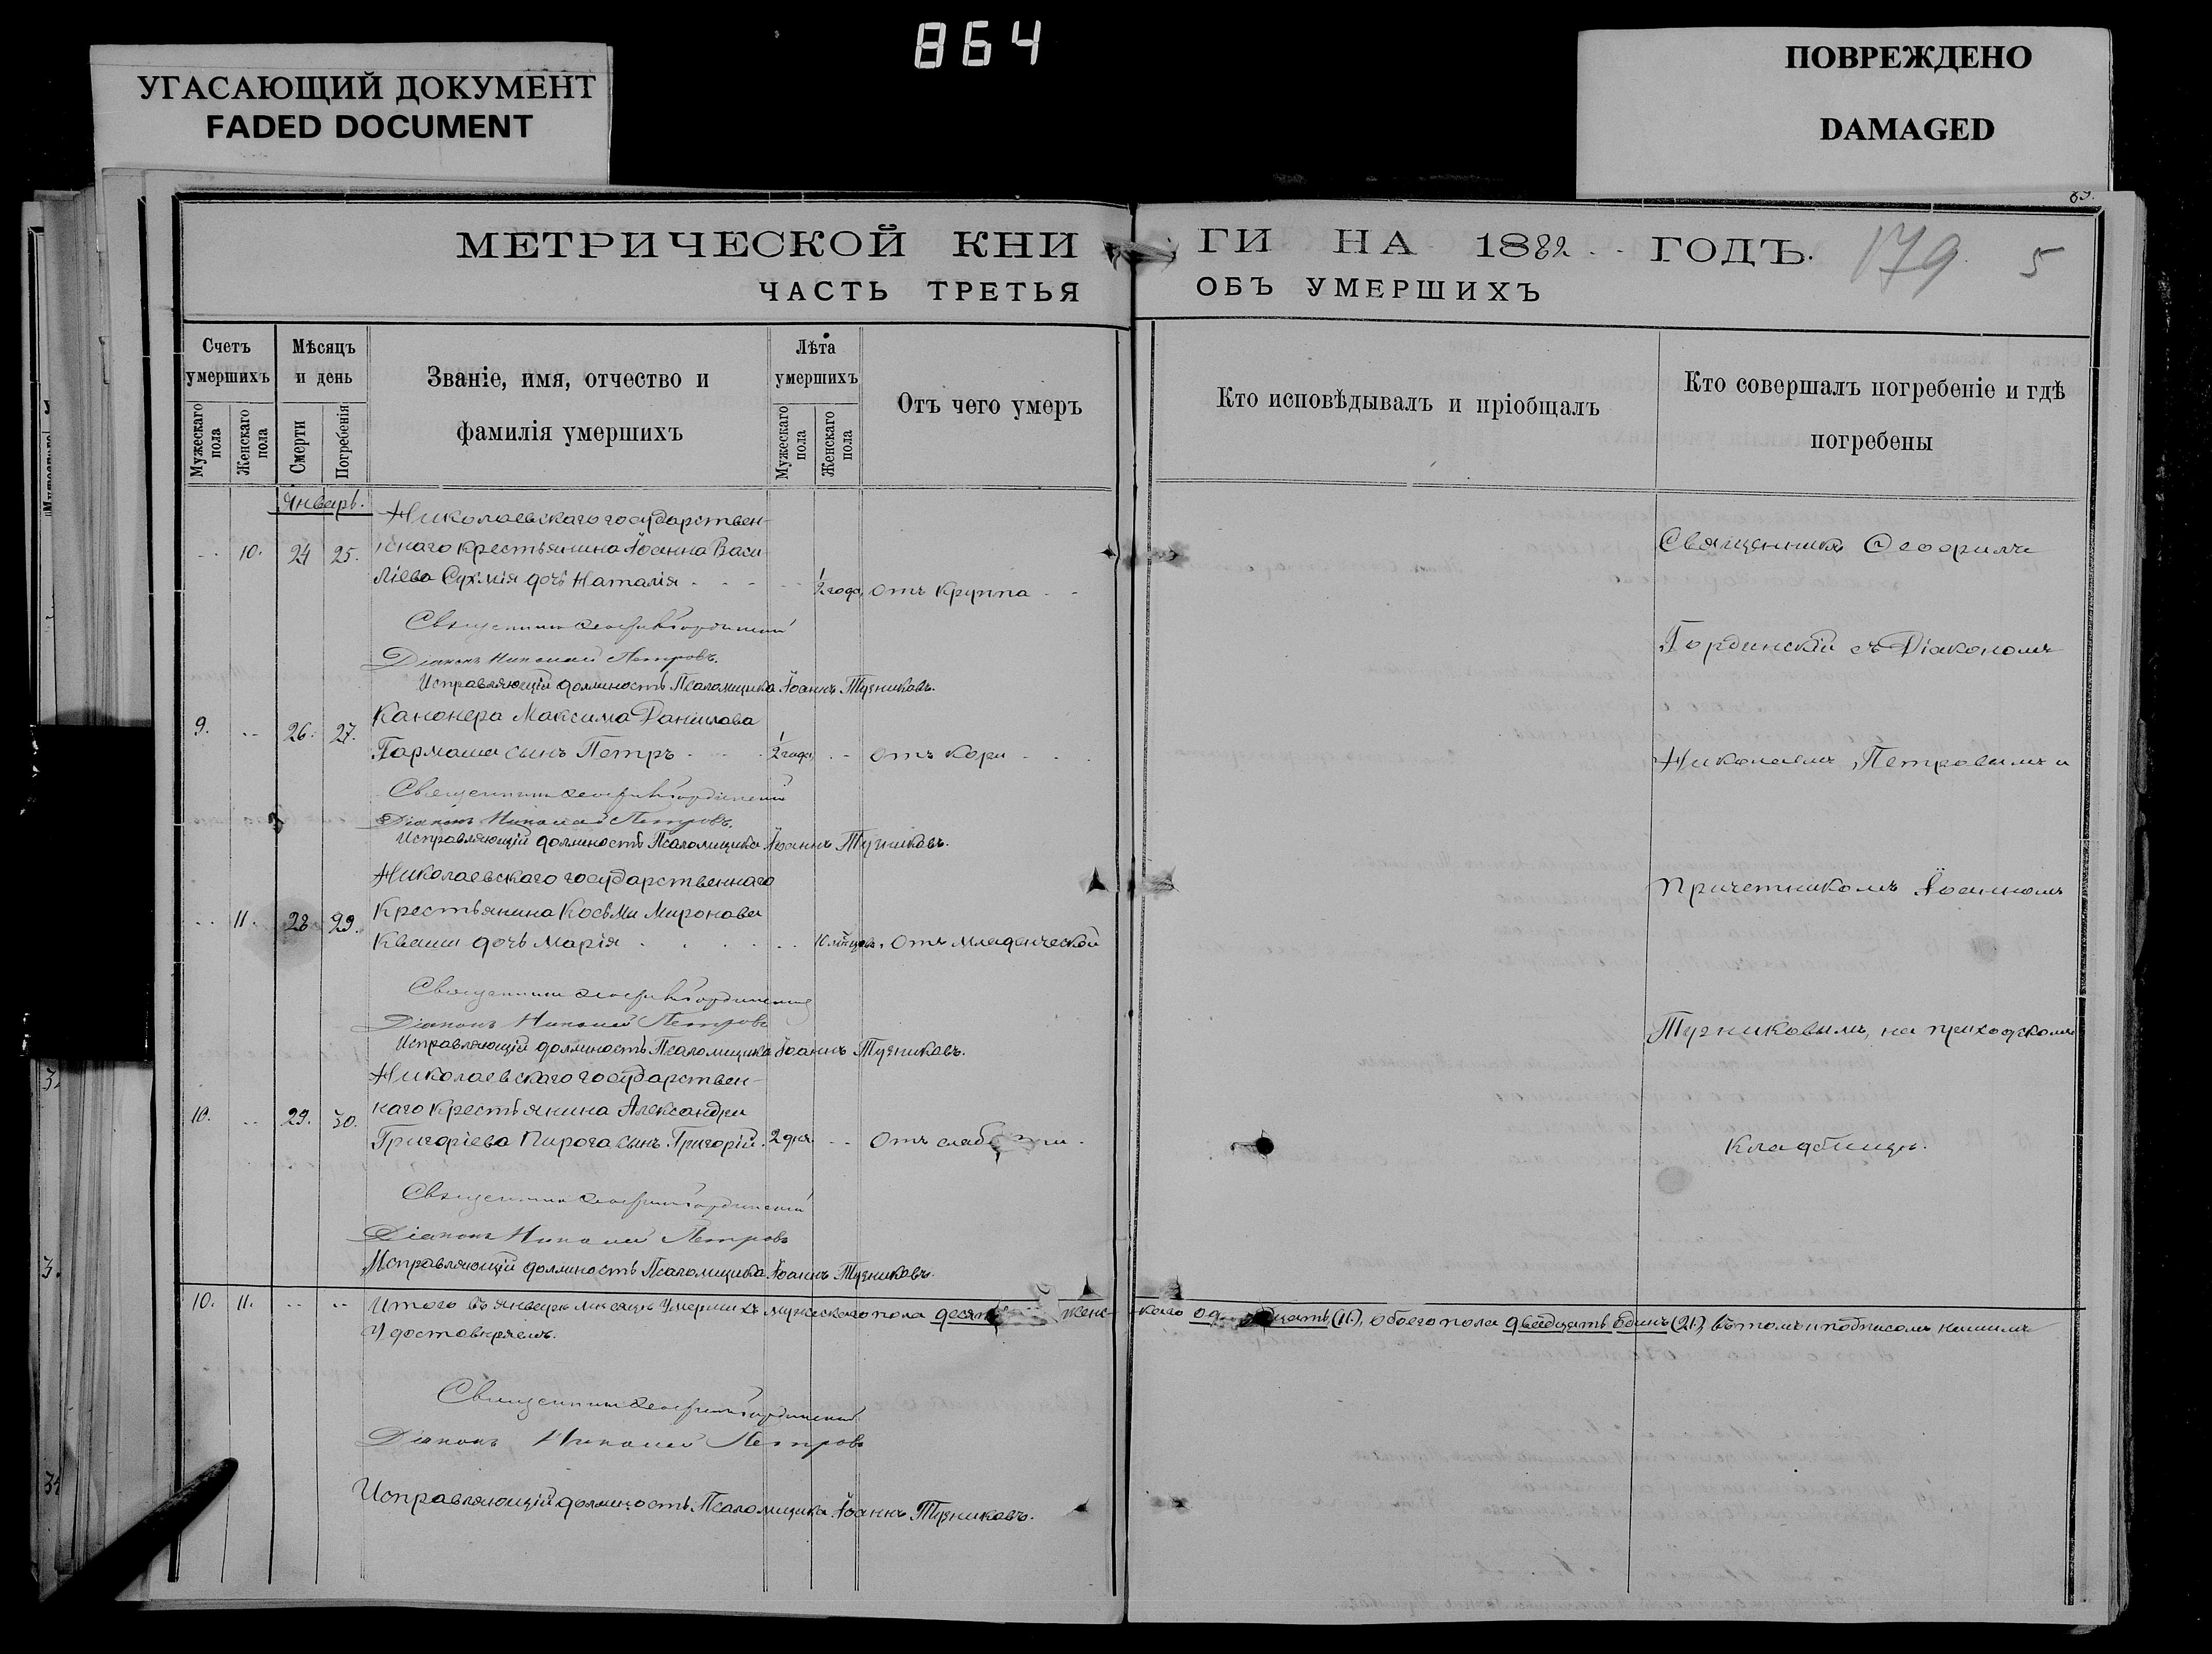 864
УГАСАЮЩИЙ ДОКУМЕНТ
FADED DOCUMENT
ПОВРЕЖДЕНО
DAMAGED
МЕТРИЧЕСКОЙ КНИ
ГИ НА 1882 ГОДЪ.
179
5
ЧАСТЬ ТРЕТЬЯ
ОБЪ УМЕРШИХЪ
Счетъ умершихъ
Мужескаго пола
Женскаго пола
Мѣсяцъ и день
Смерти
Погребенія
Званіе, имя, отчество и
фамилія умершихъ
Лѣта умершихъ
Мужескаго пола
Женскаго пола
Отъ чего умеръ
Кто исповѣдывалъ и пріобщалъ
Кто совершалъ погребеніе и гдѣ
погребены
Январь.
Николаевскаго государствен-
10. 24 25. наго крестьянина Іоанна Васи
ліева дочь Наталія ½ года, отъ круппа
Священникъ Георгій Гординскій
Діаконъ Николай Петровъ.
Исправляющій должность Псаломщика Іоаннъ Тузниковъ.
Канонера Максима Данилова
9. 26. 27. Гармаша сынъ Петръ ½ года, отъ кори
Священникъ Георгій Гординскій
Діаконъ Николай Петровъ.
Исправляющій должность Псаломщика Іоаннъ Тузниковъ.
Николаевскаго государственнаго
11. 28 29. крестьянина Косьмы Миронова
Кваши дочь Марія 10 мѣсцовъ, отъ младенческой
Священникъ Георгій Гординскій
Діаконъ Николай Петровъ
Исправляющій должность Псаломщика Іоаннъ Тузниковъ.
Николаевскаго государствен-
10. 29. 30. наго крестьянина Александра
Григоріева Пирога сынъ Григорій. 2 дня. отъ слабости.
Священникъ Георгій Гординскій
Діаконъ Николай Петровъ
Исправляющій должность Псаломщика Іоаннъ Тузниковъ.
Священникъ Георгій
Гординскій съ Діакономъ
Николаемъ Петровымъ и
Причетникомъ Іоанномъ
Тузниковымъ, на приходскомъ
кладбищѣ.
10. 11. Итого въ январѣ мѣсяцѣ умершихъ мужескаго пола десять женс-каго (11.), обоего пола двадцать одинъ (21.), въ томъ и подписомъ нашимъ
Удостовѣряемъ.
Священникъ Георгій Гординскій
Діаконъ Николай Петровъ
Исправляющій должность Псаломщика Іоаннъ Тузниковъ.